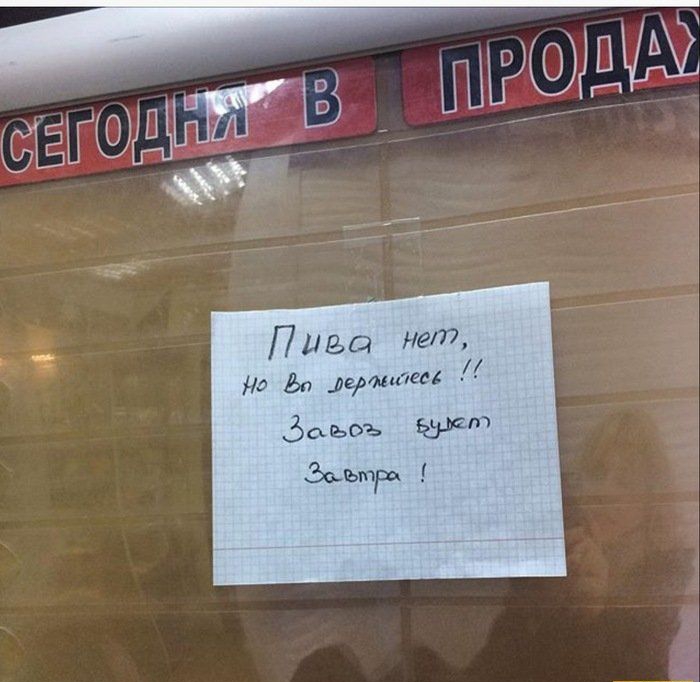 СЕГОДНЯ В ПРОДАЖ
Пива нет,
но Вы держитесь !!
Завоз будет
Завтра !